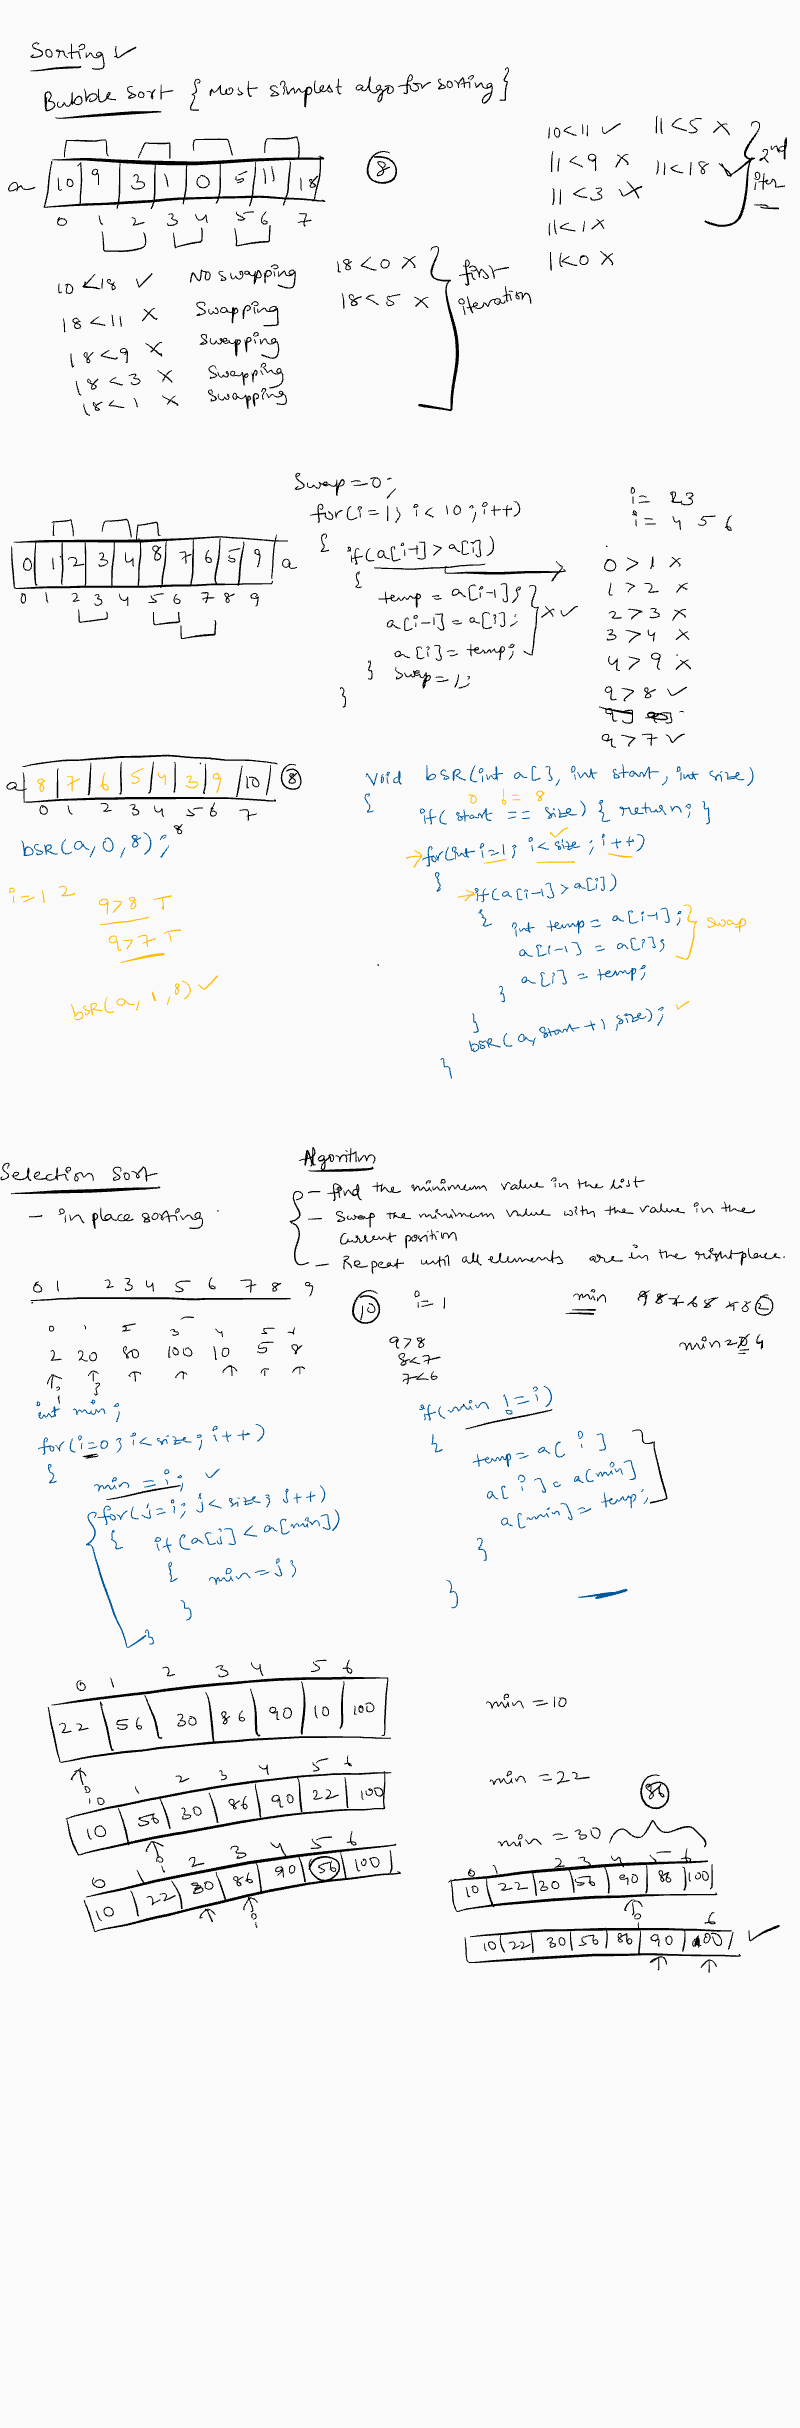 Sorting ✓
Bubble sort { Most simplest algo for sorting }
a 10 9 3 1 0 5 11 18
8
0 1 2 3 4 5 6 7
10 < 18 ✓ No swapping
18 < 11 X Swapping
18 < 9 X Swapping
18 < 3 X Swapping
18 < 1 X Swapping
18 < 0 X
18 < 5 X
first
iteration
10 < 11 ✓
11 < 9 X
11 < 3 X
11 < 1 X
1 < 0 X
11 < 5 X
11 < 18 ✓
2nd
iter
0 1 2 3 4 8 7 6 5 9 a
0 1 2 3 4 5 6 7 8 9
Swap = 0;
for(i=1; i < 10; i++)
{ if(a[i-1] > a[i])
{
temp = a[i-1];
a[i-1] = a[i];
a[i] = temp;
X ✓
} swap = 1;
}
i = 2 3
i = 4 5 6
0 > 1 X
1 > 2 X
2 > 3 X
3 > 4 X
4 > 9 X
9 > 8 ✓
9 > 7 ✓
a 8 7 6 5 4 3 9 10
8
0 1 2 3 4 5 6 7
bsR(a, 0, 8);
8
i = 1 2
9 > 8 T
9 > 7 T
bsR(a, 1, 8) ✓
void bsR(int a[], int start, int size)
{
if( start == size) { return; }
for(int i=1; i < size; i++)
{
if(a[i-1] > a[i])
{
int temp = a[i-1];
a[i-1] = a[i];
a[i] = temp;
swap
}
}
bsR(a, start + 1, size); ✓
}
Selection Sort
- in place sorting
Algorithm
- find the minimum value in the list
- Swap the minimum value with the value in the
current position
- Repeat until all elements are in the right place.
0 1 2 3 4 5 6 7 8 9
10
i = 1
min
0 1 2 3 4 5 6
2 20 80 100 10 5 8
9 > 8
8 < 7
7 < 6
int min;
for(i=0; i < size; i++)
{
min = i; ✓
for(j=i; j < size; j++)
{ if(a[j] < a[min])
{ min = j;
}
}
if(min != i)
{
temp = a[i]
a[i] = a[min]
a[min] = temp;
}
}
0 1 2 3 4 5 6
22 56 30 86 90 10 100
min = 10
0 1 2 3 4 5 6
10 56 30 86 90 22 100
min = 22
0 1 2 3 4 5 6
10 22 30 86 90 56 100
min = 30
86
0 1 2 3 4 5 6
10 22 30 56 90 86 100
6
10 22 30 56 86 90 100 ✓